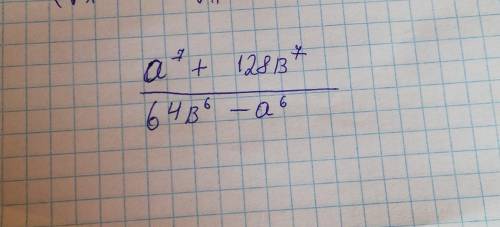 a⁷ + 128в⁷
64в⁶ - a⁶